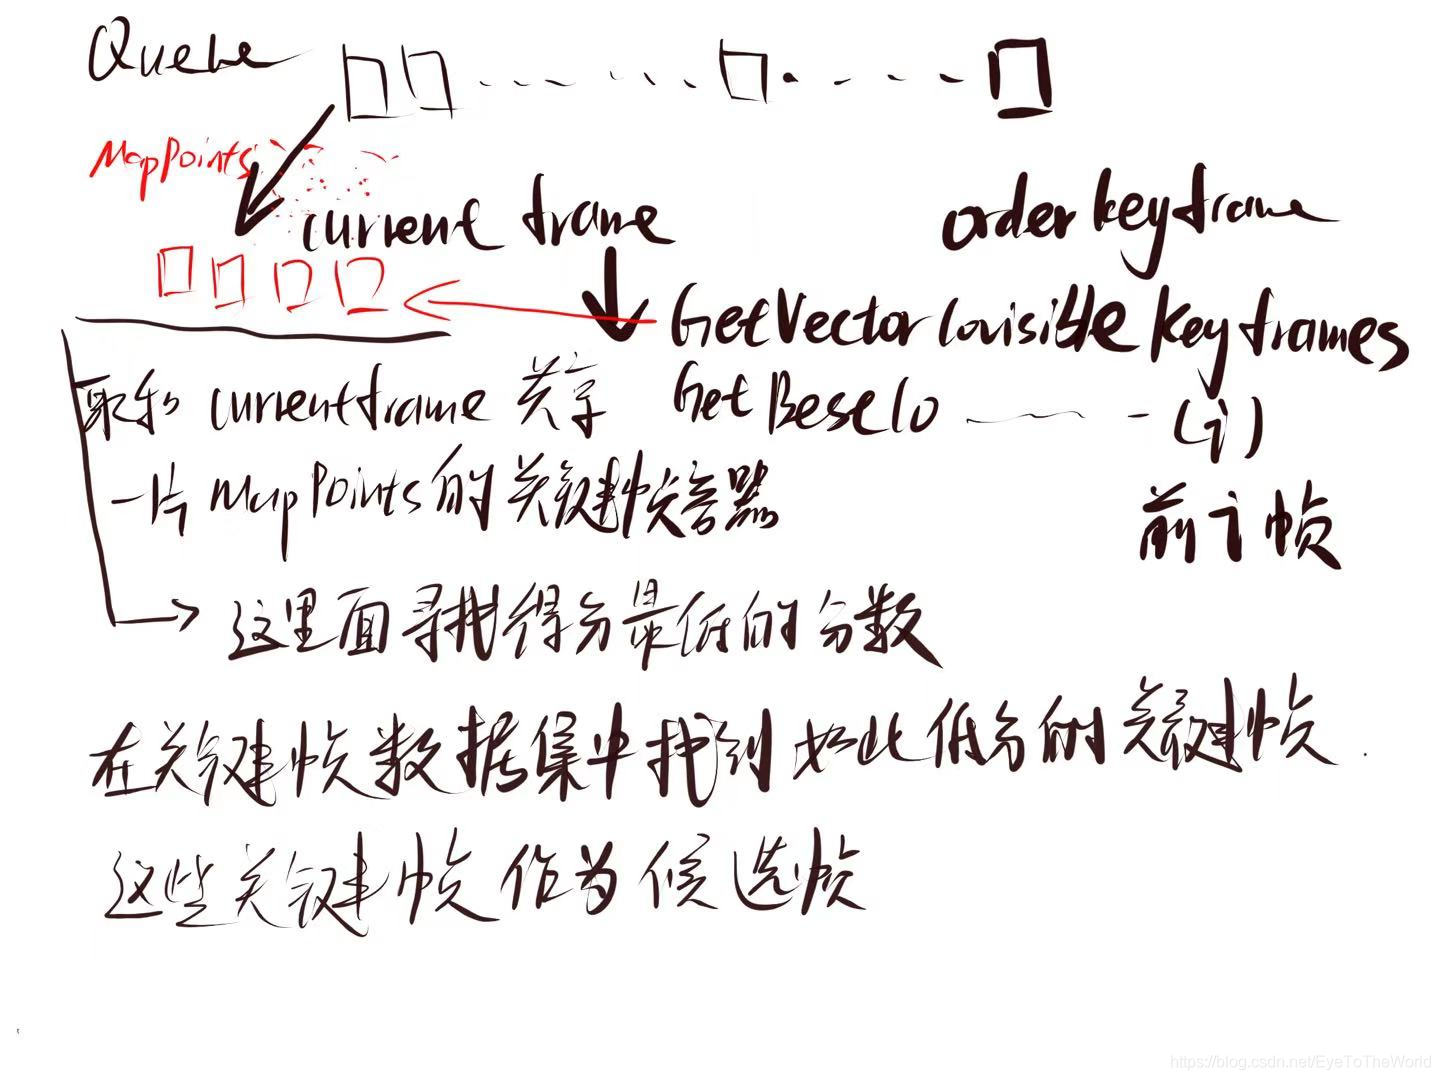 Queue
MapPoints
current frame
order keyframe
GetVectorCovisible Keyframes
取和 currentframe 共享
GetBestCo (i)
一片 MapPoints的关键帧容器
前i帧
这里面寻找得分最低的分数
在关键帧数据集中找到 如此低分的关键帧.
这些关键帧作为候选帧
https://blog.csdn.net/EyeToTheWorld